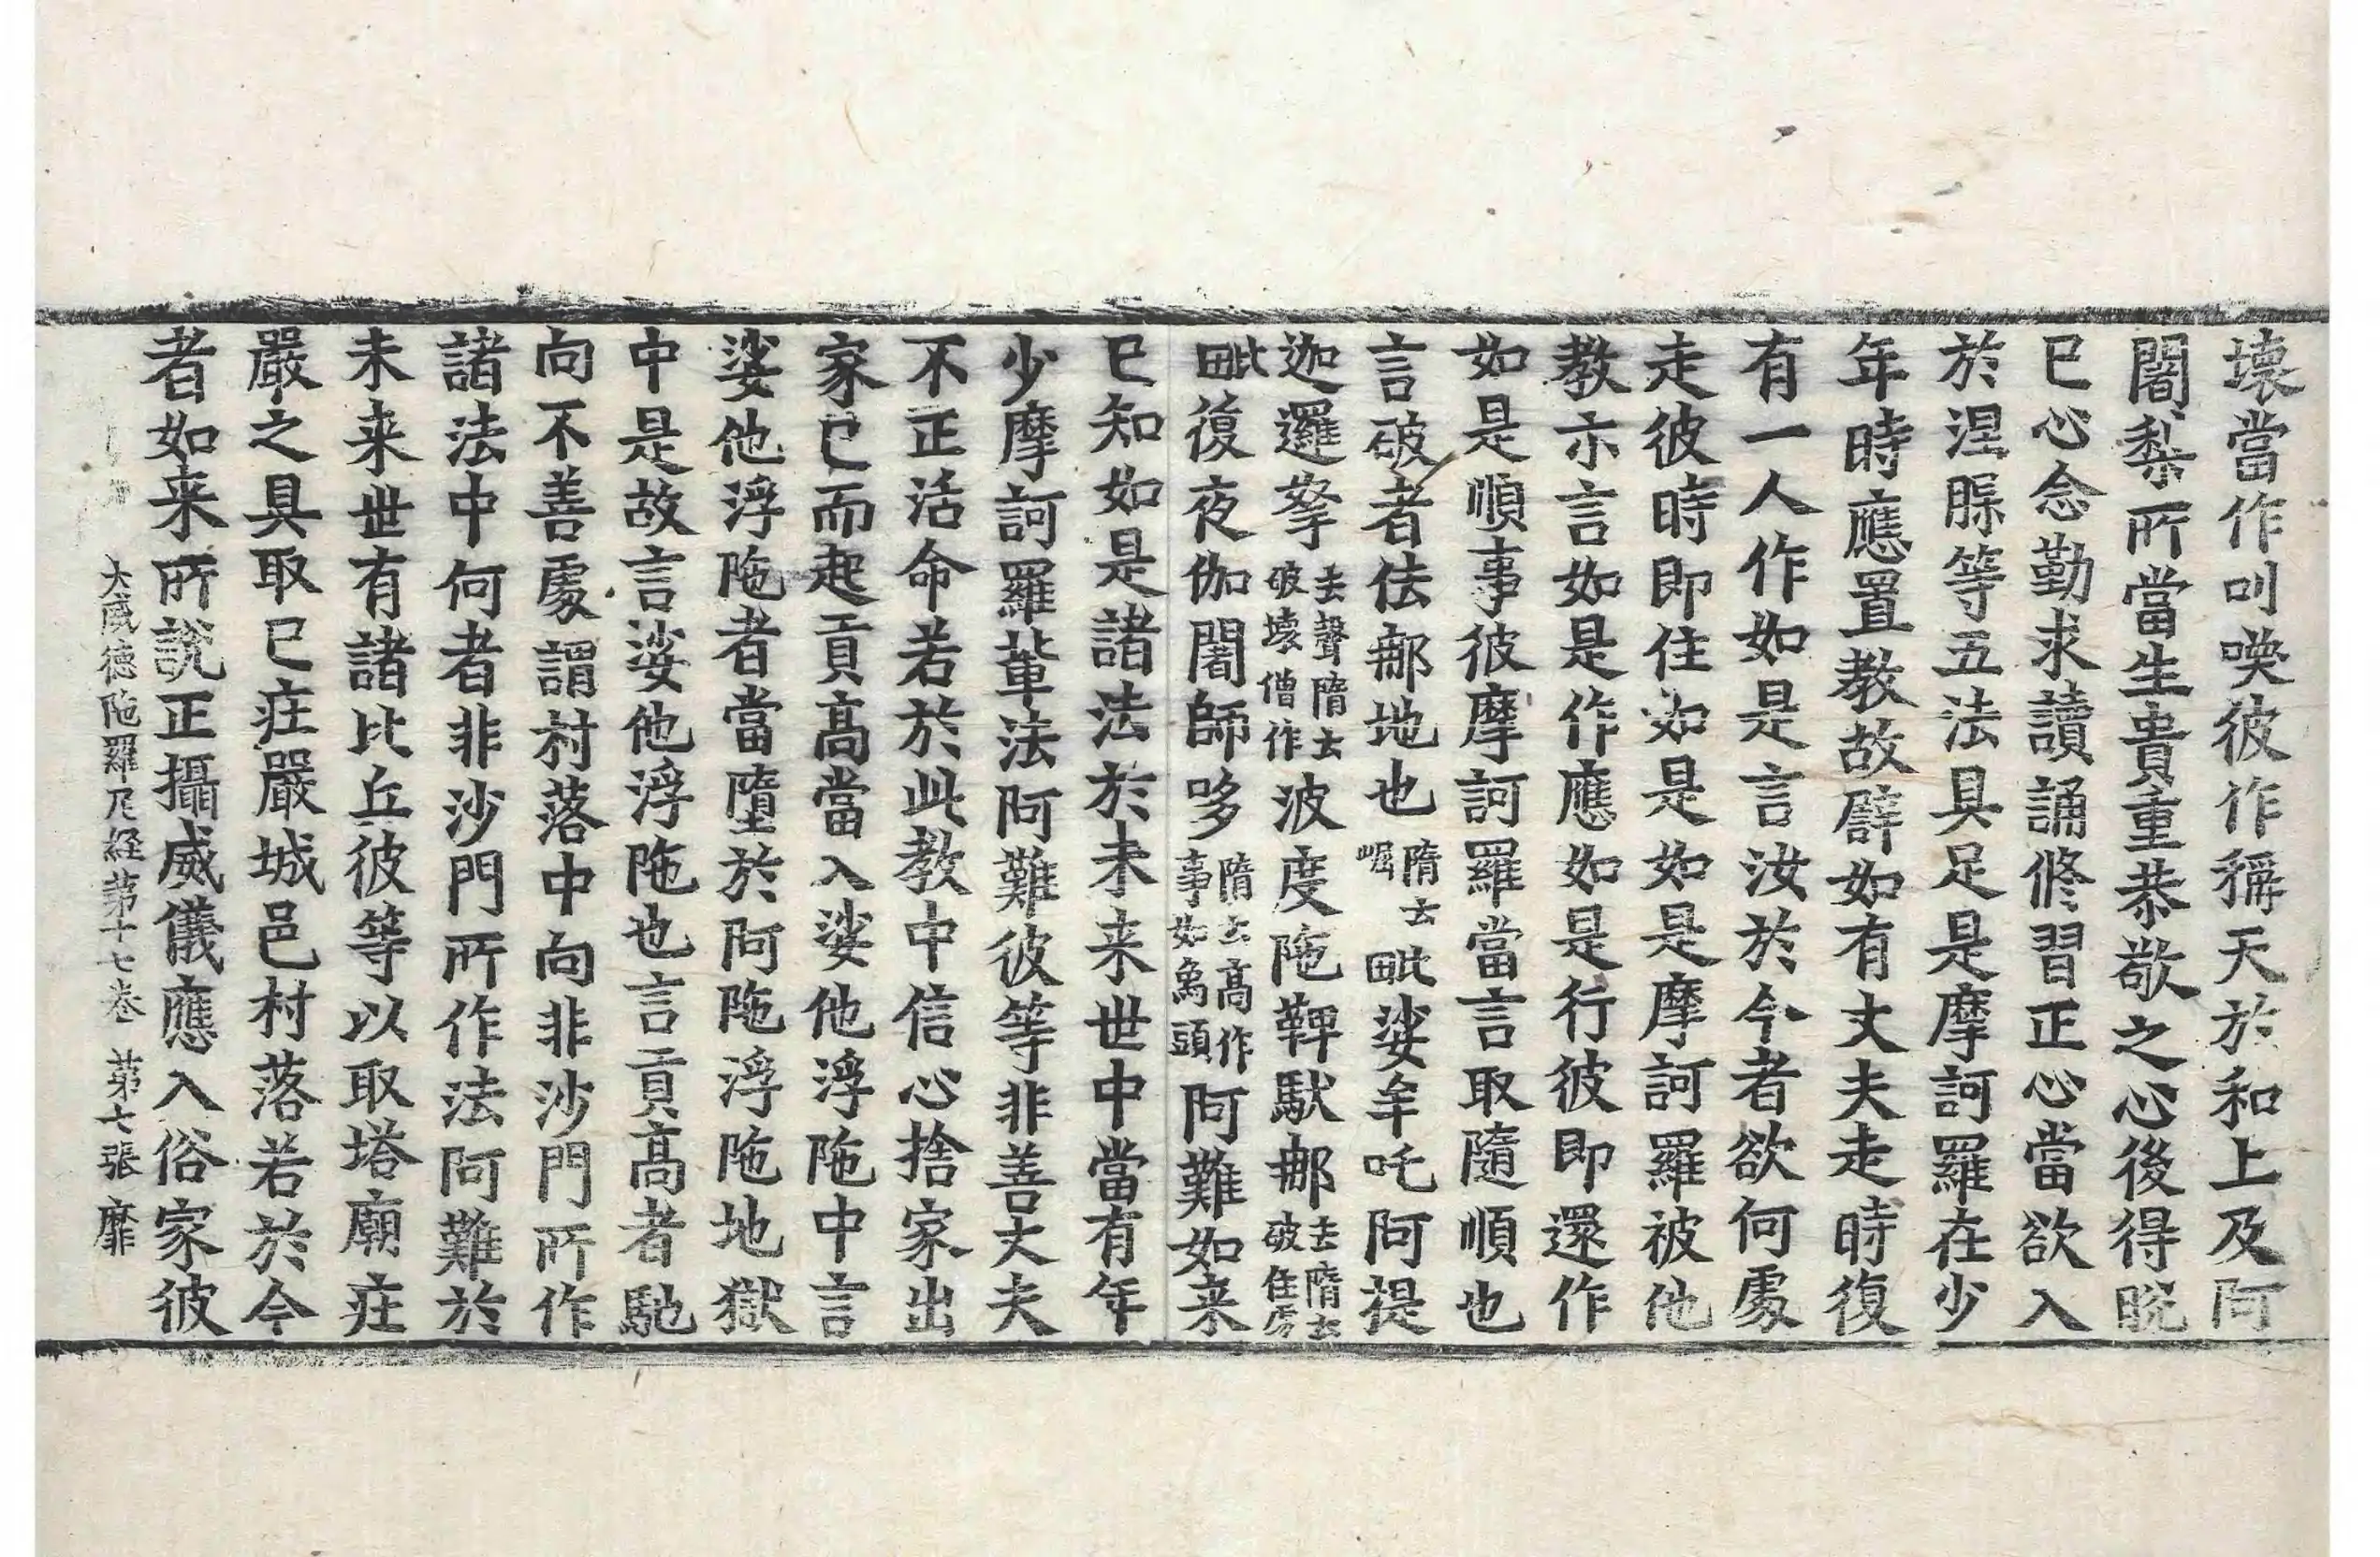 壊當作叫喚彼作稱天於和上及阿
闍梨所當生貴重恭敬之心後得睆
已心念勤求讀誦修習正心當欲入
於涅脲等五法具足是摩訶羅在少
年時應置教故譬如有丈夫走時復
有一人作如是言汝於今者欲何處
走彼時即住如是如是摩訶羅被他
教示言如是作應如是行彼即還作
如是順事彼摩訶羅當言取隨順也
言破者佉𨚗地也隋云崛毗娑牟吒阿提
迦邏拏去聲隋云破壞僧作波度陁鞞馱𨚗去隋云破住房
毗復夜伽闍師哆隋云高作事如象頭阿難如来
已知如是諸法於未来世中當有年
少摩訶羅輩法阿難彼等非善丈夫
不正活命若於此教中信心捨家出
家已而起貢高當入娑他浮陁中言
娑他浮陁者當墮於阿陁浮陁地獄
中是故言娑他浮陁也言貢高者馳
向不善處謂村落中向非沙門所作
諸法中何者非沙門所作法阿難於
未来世有諸比丘彼等以取塔廟庄
嚴之具取已庄嚴城邑村落若於今
者如来所說正攝威儀應入俗家彼
大威德陁羅尼経苐十七卷 苐七張 靡